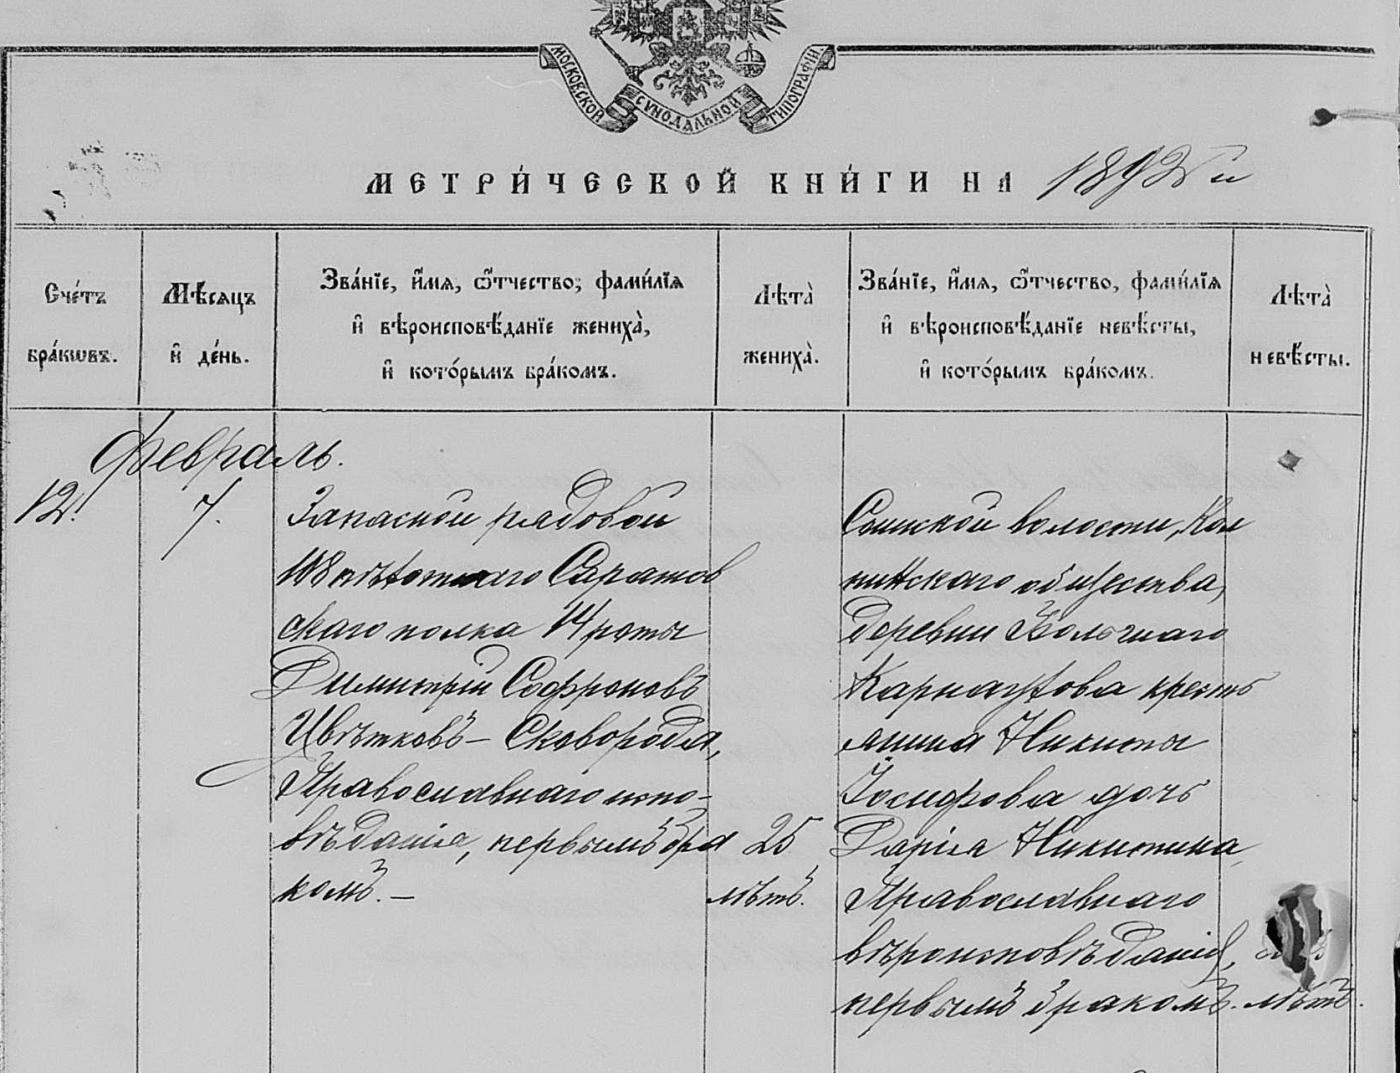 МОСКОВСКОЙ СѴНОДАЛЬНОЙ ТИПОГРАФІИ.
МЕТРИ́ЧЕСКОЙ КНИ́ГИ НА
Сче́тъ
бра́кѡвъ.
Мѣ́сяцъ
и҆ де́нь.
Зва́нїе, и҆́мѧ, ѻ҆́тчество, фами́лїѧ
и҆ вѣроисповѣ́данїе жениха̀,
и҆ кото́рымъ бра́комъ.
Лѣта̀
жениха̀.
Зва́нїе, и҆́мѧ, ѻ҆́тчество, фами́лїѧ
и҆ вѣроисповѣ́данїе невѣ́сты,
и҆ кото́рымъ бра́комъ.
Лѣта̀
невѣ́сты.
Февраль.
12.
7.
Запасной рядовой
108 пѣхотнаго Саратов
скаго полка 14 роты
Димитрій Софроновъ
Цвѣтковъ - Сковорода,
Православнаго испо-
вѣданія, первымъ бра
комъ. —
25
лѣтъ.
волости,
общества,
деревни Вольшаго
Карнаухова кресть
янина Никиты
Іосифова дочь
Дарія Никитина,
Православнаго
вѣроисповѣданія,
первымъ бракомъ.
лѣтъ.